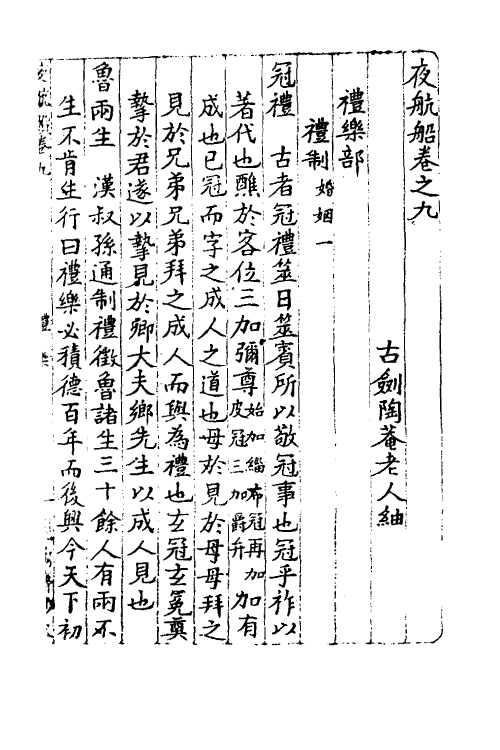 夜航船卷之九
古劍陶菴老人紬
禮樂部
禮制 婚姻一
冠禮 古者冠禮筮日筮賓所以敬冠事也冠乎祚以
著代也醮於客位三加彌尊始加緇布冠再加皮冠三加爵弁加有
成也已冠而字之成人之道也母於見於母母拜之
見於兄弟兄弟拜之成人而與為禮也玄冠玄冕奠
摯於君遂以摯見於卿大夫鄉先生以成人見也
魯兩生 漢叔孫通制禮徵魯諸生三十餘人有兩不
生不肯生行曰禮樂必積德百年而後興今天下初
卷九
禮樂